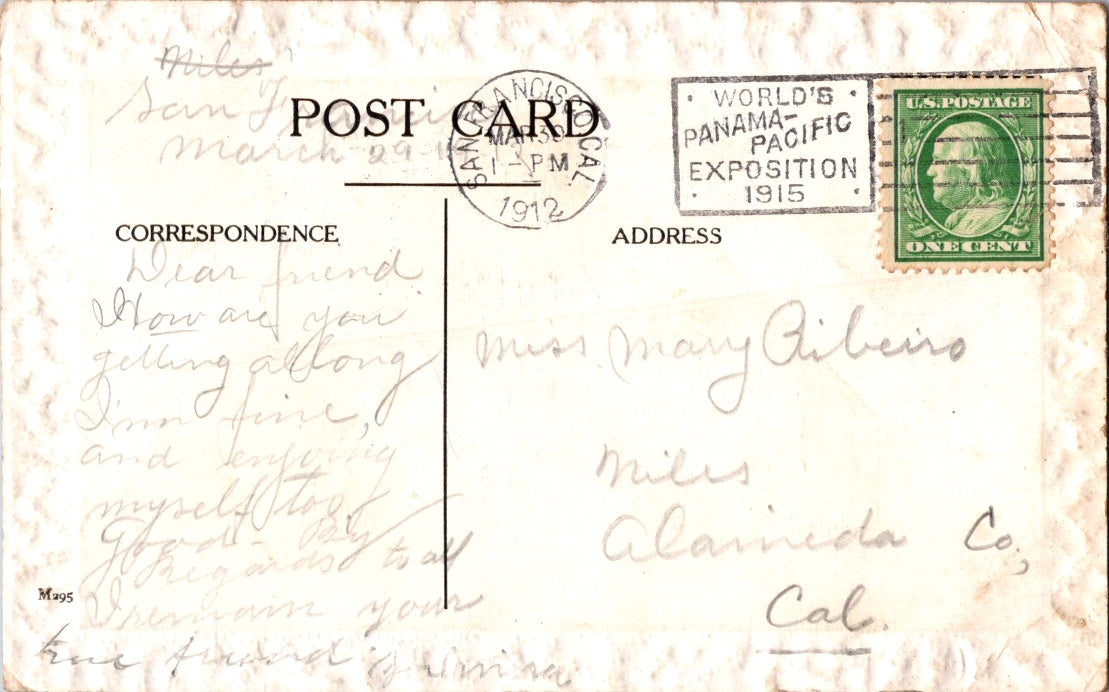 Miles
San Francisco
March 29-1
POST CARD
SAN FRANCISCO, CAL.
MAR 30
1-PM
1912
WORLD'S
PANAMA-
PACIFIC
EXPOSITION
1915
U.S. POSTAGE
ONE CENT
CORRESPONDENCE
Dear friend
How are you
getting allong
I'm fine,
and enjoying
myself too,
Good-By
Regards to all
I remain your
true friend
M295
ADDRESS
Miss Mary Ribeiro
Niles
Alameda Co,
Cal.